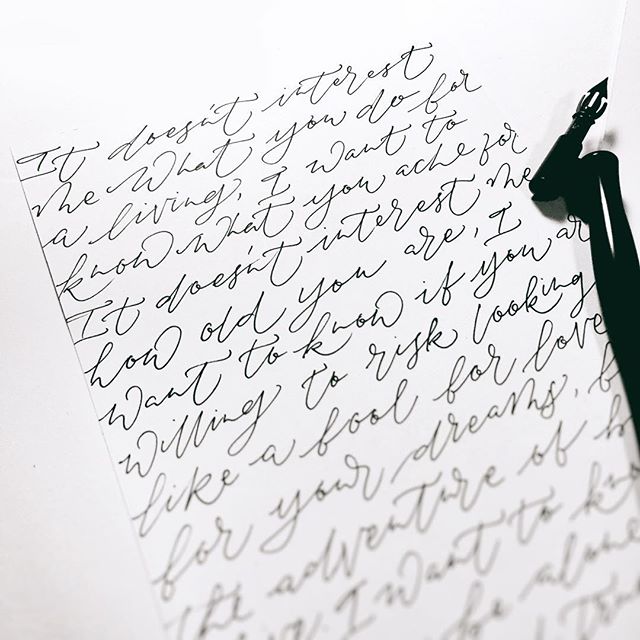 It doesn't interest
me what you do for
a living, I want to
know what you ache for
It doesn't interest me
how old you are, I
want to know if you ar
willing to risk looking
like a fool for love
for your dreams,
the adventure of
I want to kn
be alone